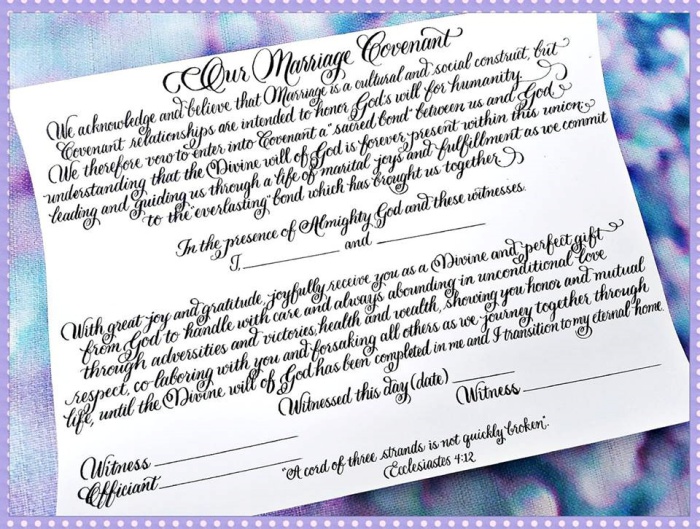 Our Marriage Covenant
We acknowledge and believe that Marriage is a cultural and social construct, but
Covenant relationships are intended to honor God's will for humanity.
We therefore vow to enter into Covenant a "sacred bond" between us and God
understanding that the Divine will of God is forever present within this union;
leading and guiding us through a life of marital joys and fulfillment as we commit
to the "everlasting" bond which has brought us together.
In the presence of Almighty God and these witnesses.
I, __________ and __________
With great joy and gratitude, joyfully receive you as a Divine and perfect gift
from God to handle with care and always abounding in unconditional love
through adversities and victories, health and wealth, showing you honor and mutual
respect, co-laboring with you and forsaking all others as we journey together through
life, until the Divine will of God has been completed in me and I transition to my eternal home.
Witnessed this day (date) ______
Witness __________ Witness __________
Officiant __________
"A cord of three strands is not quickly broken".
Ecclesiastes 4:12